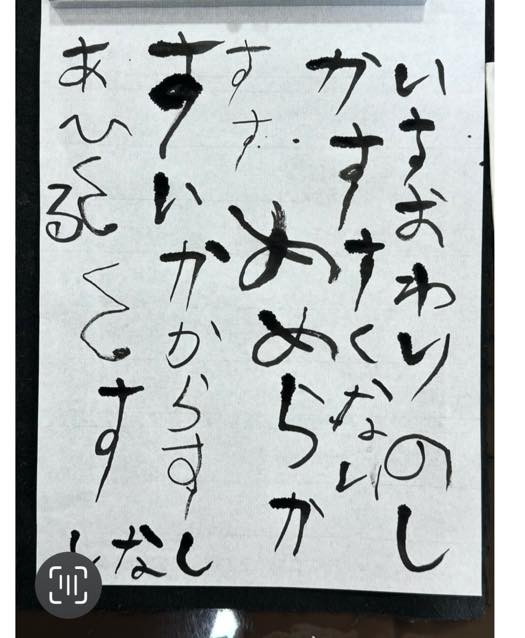 いすおわりのし
かすすくない
すす
めめらか
すいかからすし
あひくしす
るくし
なし